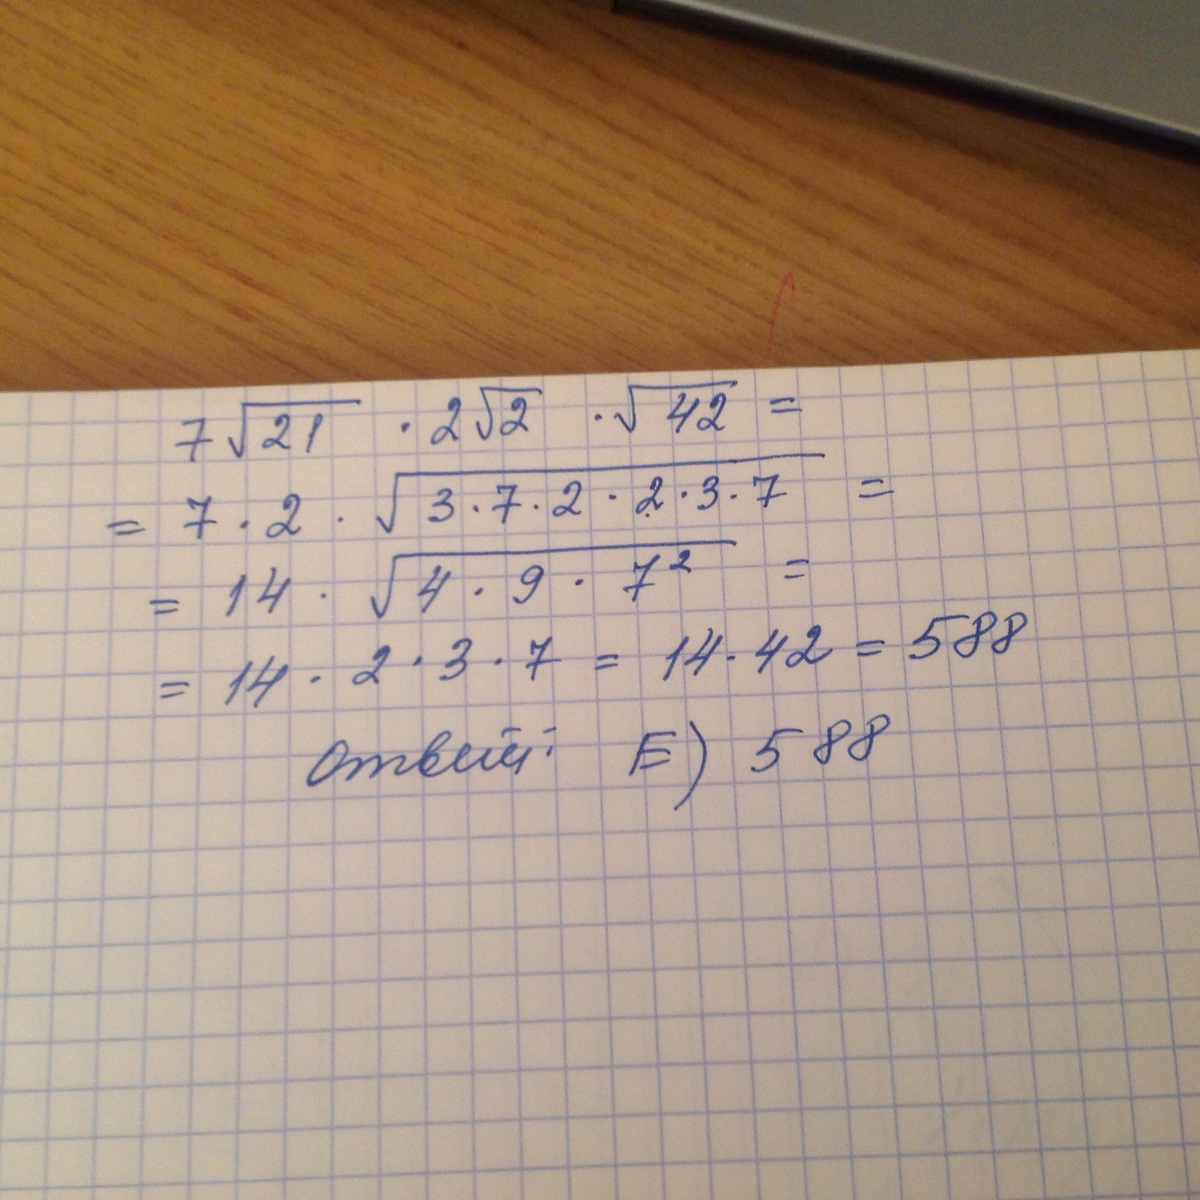 7√21 · 2√2 · √42 =
= 7 · 2 · √3·7·2·2·3·7 =
= 14 · √4 · 9 · 7² =
= 14 · 2 · 3 · 7 = 14 · 42 = 588
Ответ: E) 588